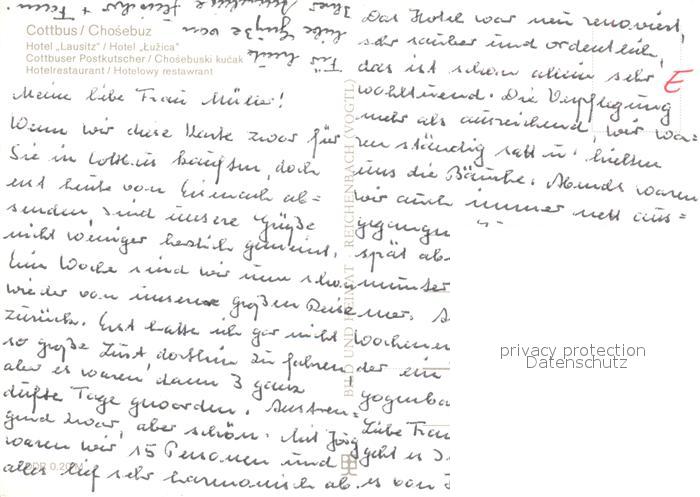 Cottbus / Chośebuz
Hotel „Lausitz" / Hotel „Łužica"
Cottbuser Postkutscher / Chośebuski kućak
Hotelrestaurant / Hotelowy restawrant
Meine liebe Frau Müller!
Wenn wir diese Karte zwar für
Sie in Cottbus kauften, doch
erst heute von Eisenach ab=
senden, sind unsere Grüße
nicht weniger herzlich gemeint.
Eine Woche sind wir nun schon
wieder von unserer großen Reise
zurück. Erst hatte ich gar nicht
so große Lust dorthin zu fahren
aber es waren dann 3 ganz
dufte Tage geworden. Anstren=
gend zwar, aber schön. Mit Jörg
waren wir 15 Personen und
alles lief sehr harmonisch ab.
DDR 0,20 M
Das Hotel war neu renoviert,
sehr sauber und ordentlich,
das ist schon allein sehr
wohltuend. Die Verpflegung
mehr als ausreichend, wir wa=
ren ständig satt u. hielten
uns die Bäuche. Abends waren
wir auch immer nett aus=
gegangen
spät ab
munter
Wochenen
der ein
Liebe Frau
geht es
es von
E
Für heute
liebe Grüße von
Ihrer
Familie + Fam.
BILD UND HEIMAT REICHENBACH (VOGTL)
privacy protection
Datenschutz